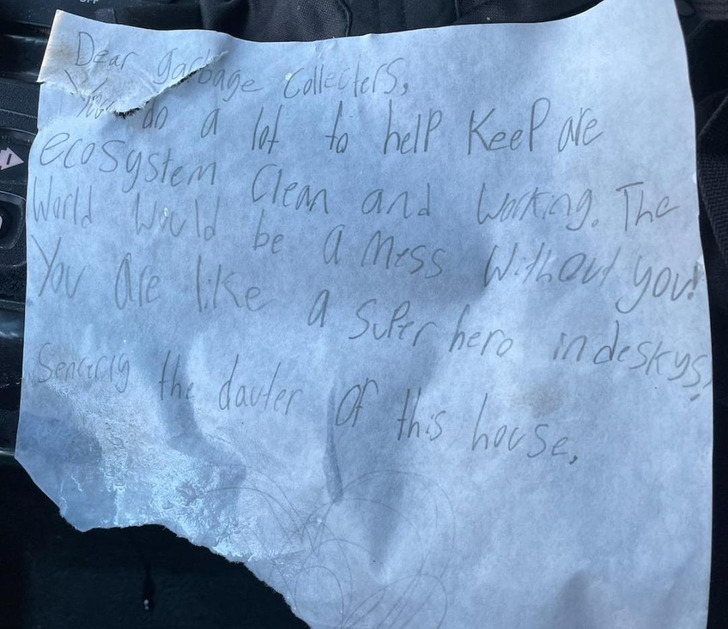 Dear garbage Collecters,
You do a lot to help keep are
ecosystem Clean and working. The
World Would be a mess Without you!
You are like a super hero indeskys,
Sencerly the dauter of this house,